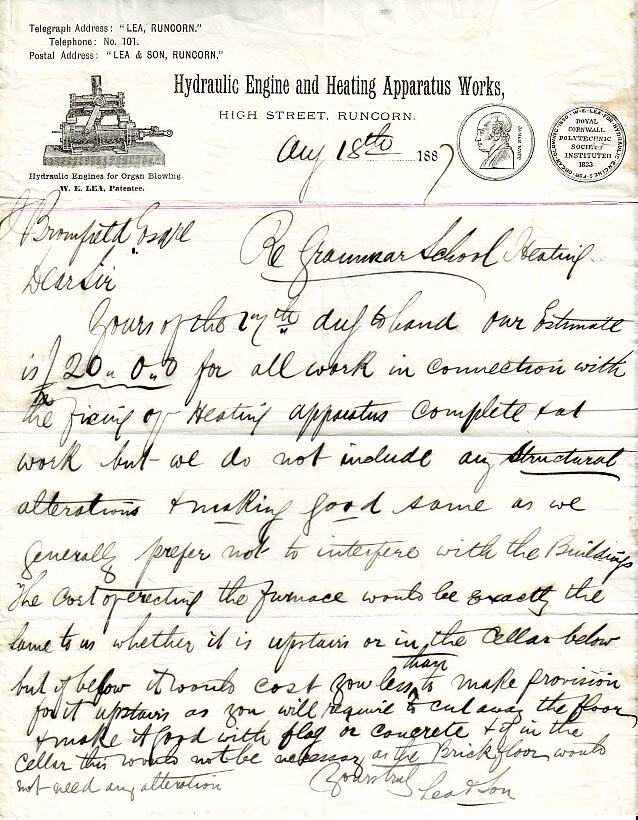 Telegraph Address: "LEA, RUNCORN."
Telephone: No. 101.
Postal Address: "LEA & SON, RUNCORN."
Hydraulic Engine and Heating Apparatus Works,
HIGH STREET, RUNCORN.
Hydraulic Engines for Organ Blowing
W. E. LEA, Patentee.
JAMES WATT
W. E. LEA FOR HYDRAULIC ENGINES FOR ORGAN BLOWING
ROYAL
CORNWALL
POLYTECHNIC
SOCIETY
INSTITUTED
1833
Aug 18th 1887
Bromfield Esqre
Re Grammar School Heating
Dear Sir
Yours of the 17th duly to hand our Estimate
is £20 " 0 " 0 for all work in connection with
the fixing of Heating apparatus complete & at
work but we do not include any structural
alterations & making good same as we
generally prefer not to interfere with the Buildings
The Cost of erecting the furnace would be exactly the
same to us whether it is upstairs or in the Cellar below
but if below it would cost you less than to make provision
for it upstairs as you will require to cut away the floor
& make it good with flag or concrete & if in the
Cellar this would not be necessary as the Brick floor would
not need any alteration
Yours truly
Lea & Son